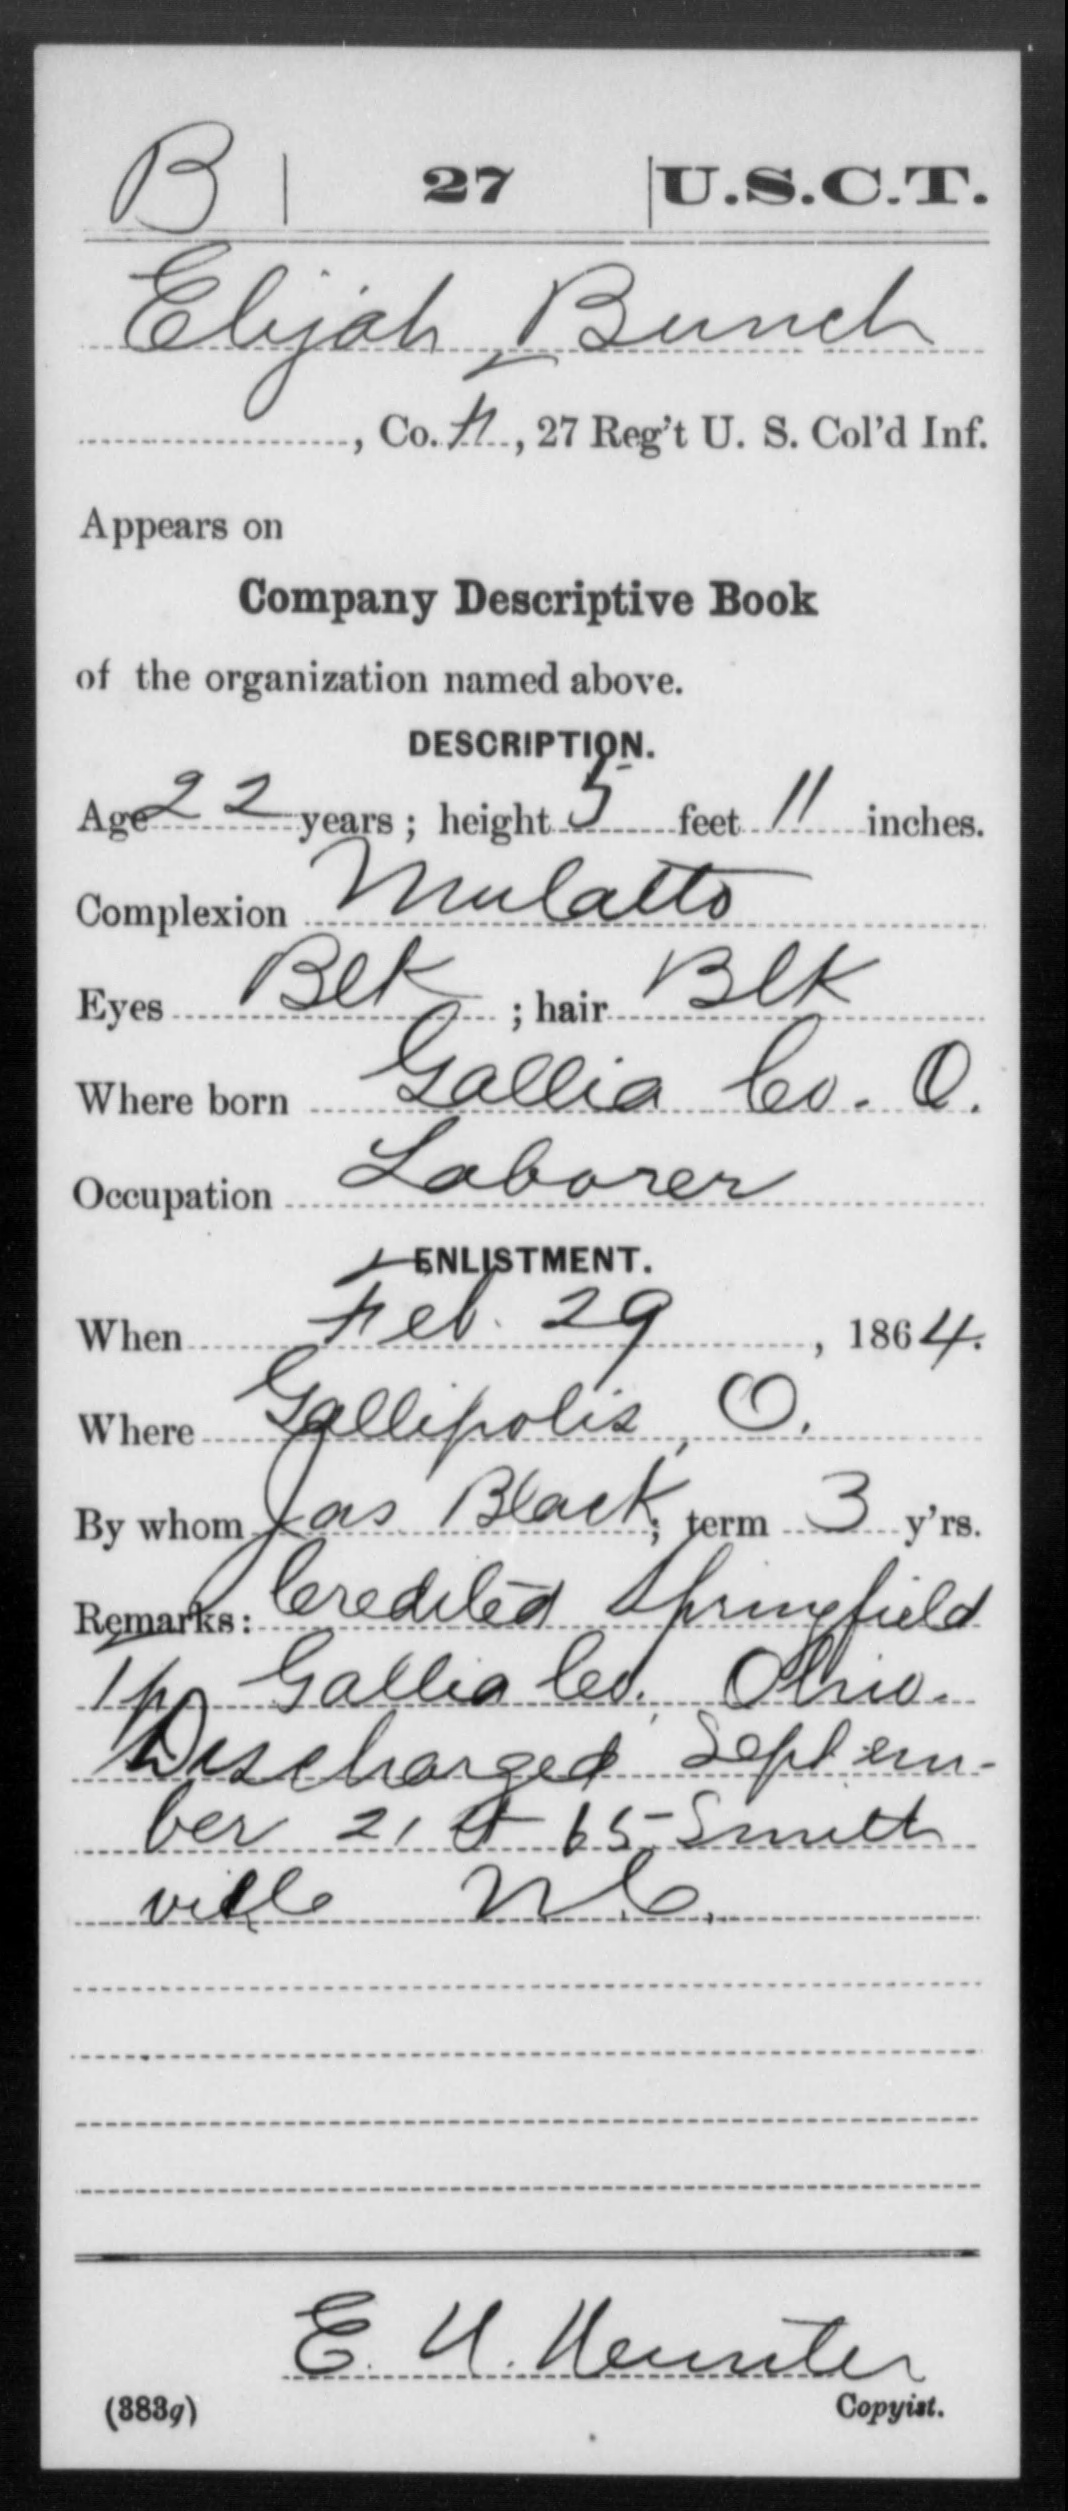 B | 27 | U.S.C.T.
Elijah Bunch
, Co. F, 27 Reg't U. S. Col'd Inf.
Appears on
Company Descriptive Book
of the organization named above.
DESCRIPTION.
Age 22 years; height 5 feet 11 inches.
Complexion Mulatto
Eyes Blk; hair Blk
Where born Gallia Co. O.
Occupation Laborer
ENLISTMENT.
When Feb. 29, 1864.
Where Gallipolis, O.
By whom Jas Black; term 3 y'rs.
Remarks: Credited Springfield
Tp Gallia Co. Ohio.
Discharged Septem-
ber 21st 65 Smith
ville N.C.
E. H.
(383g) Copyist.